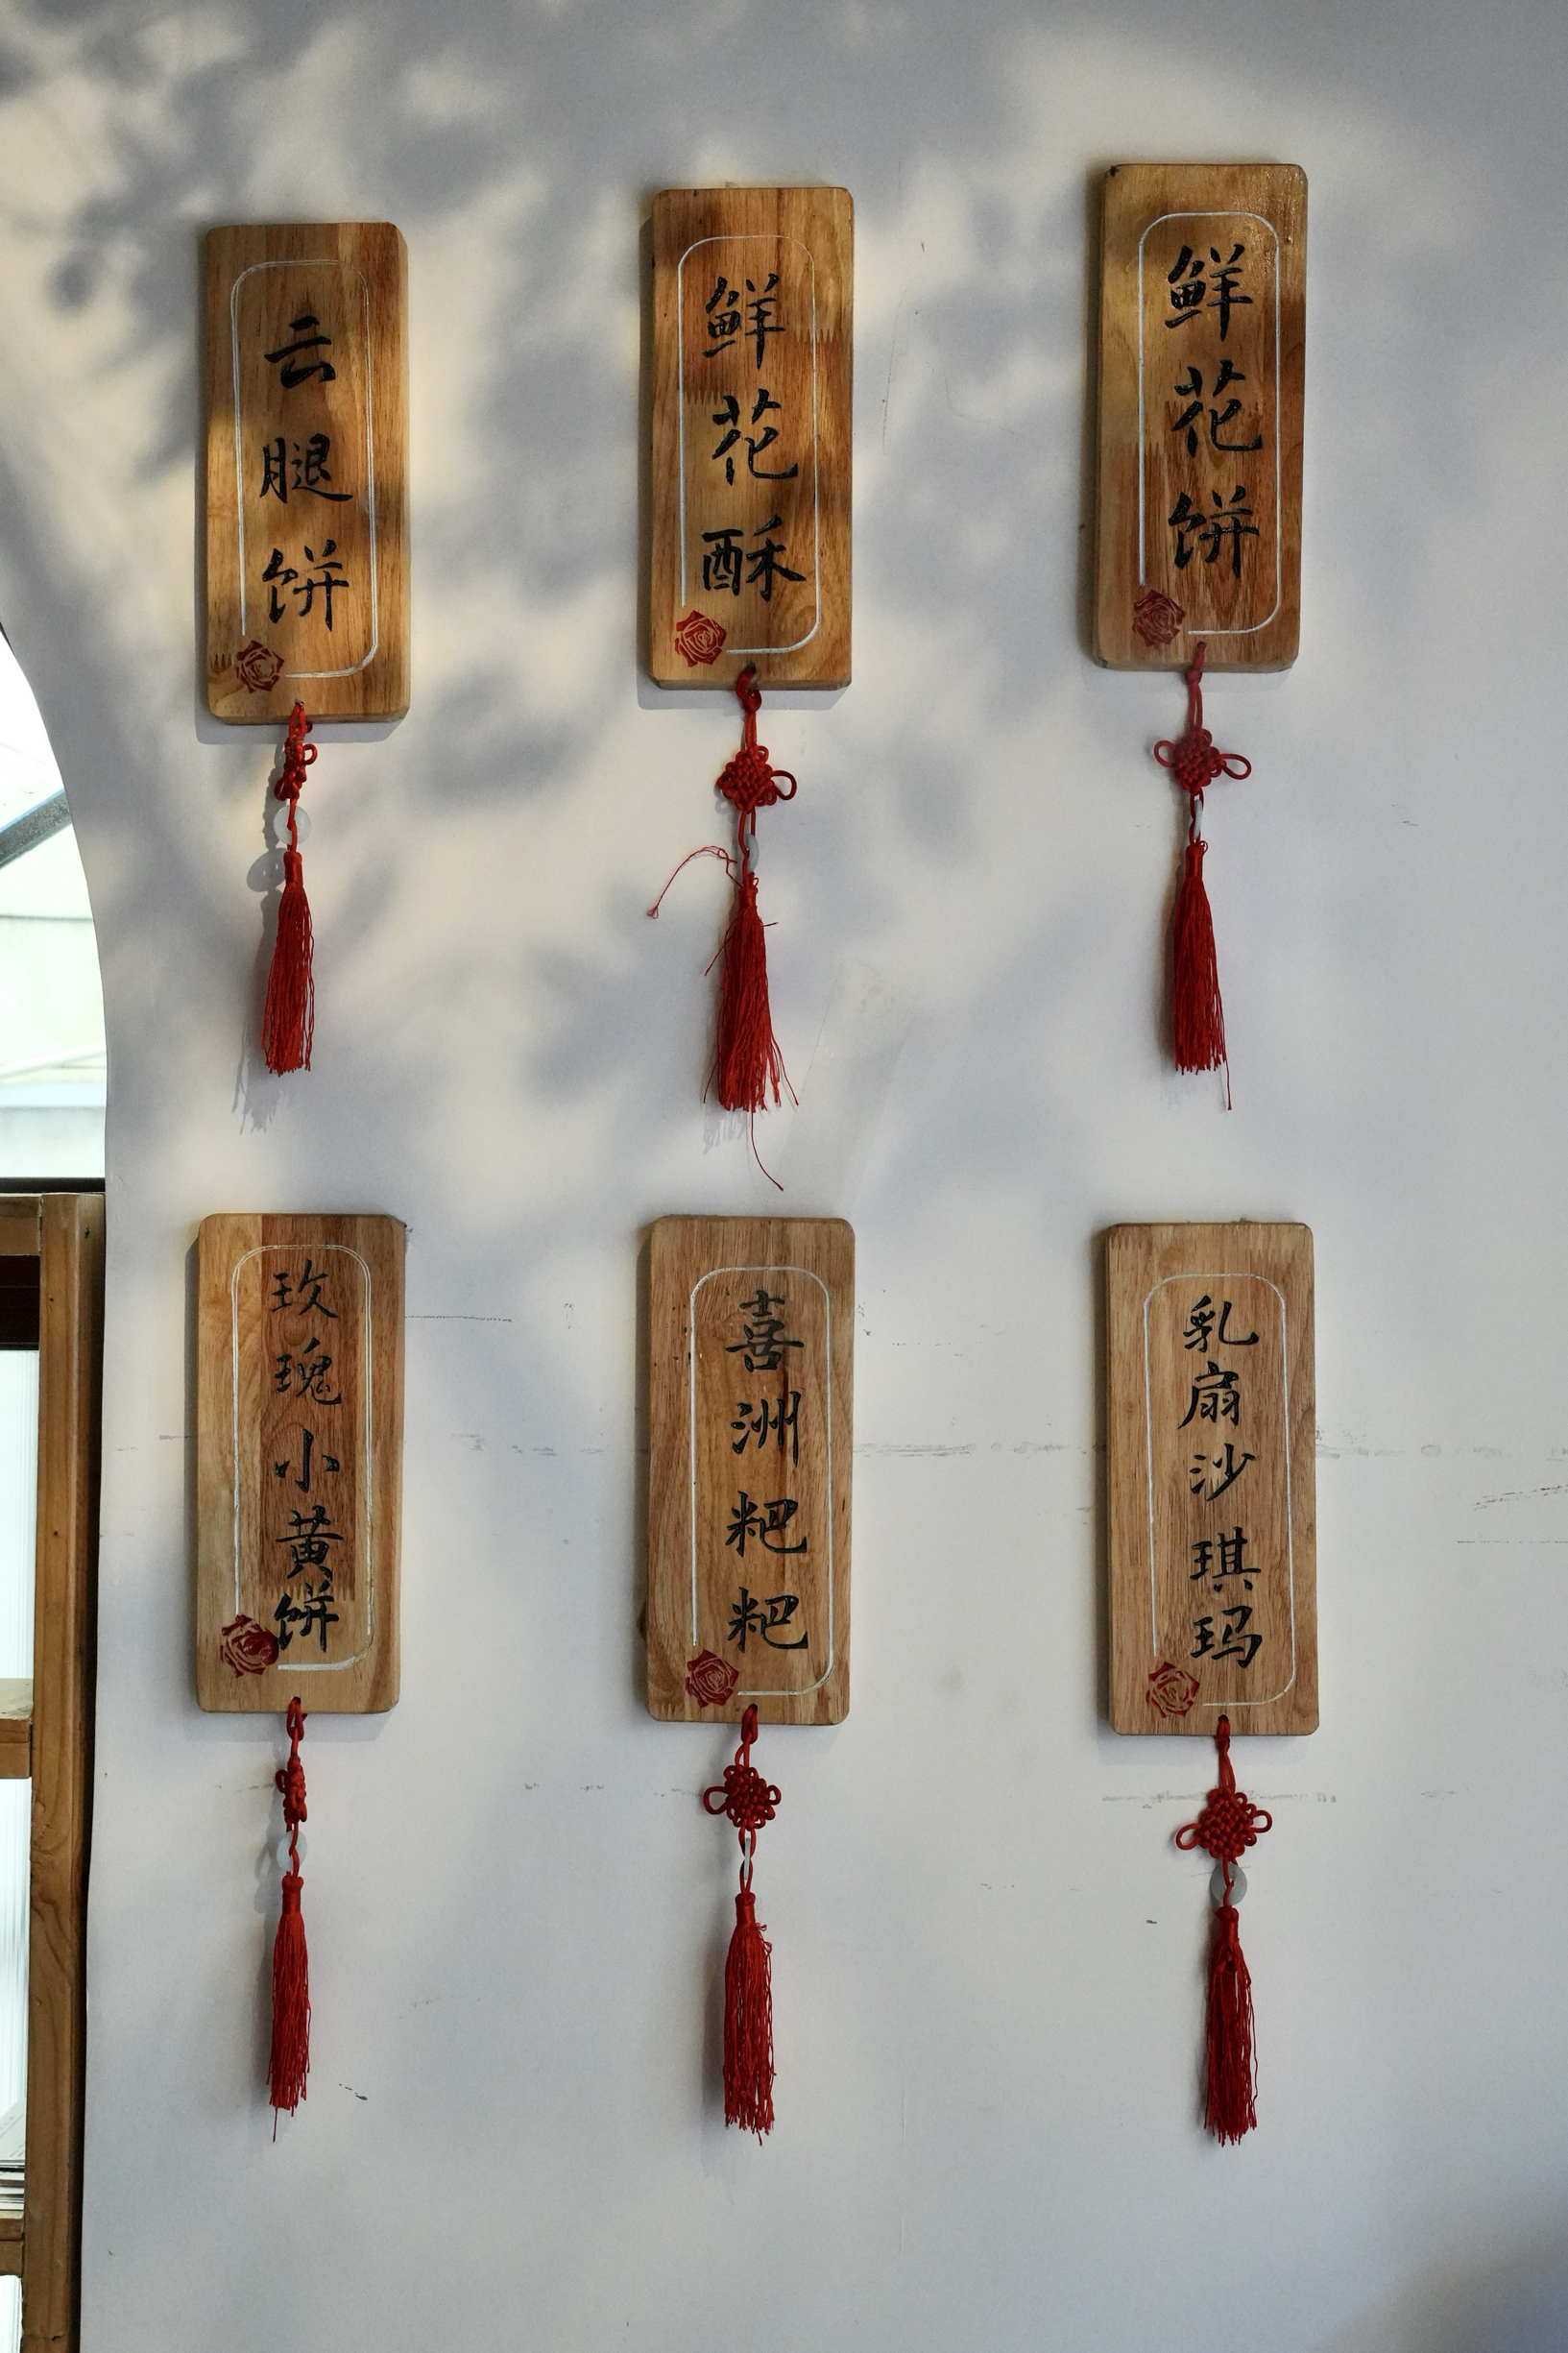 云腿饼
鲜花酥
鲜花饼
玫瑰小黄饼
喜洲粑粑
乳扇沙琪玛